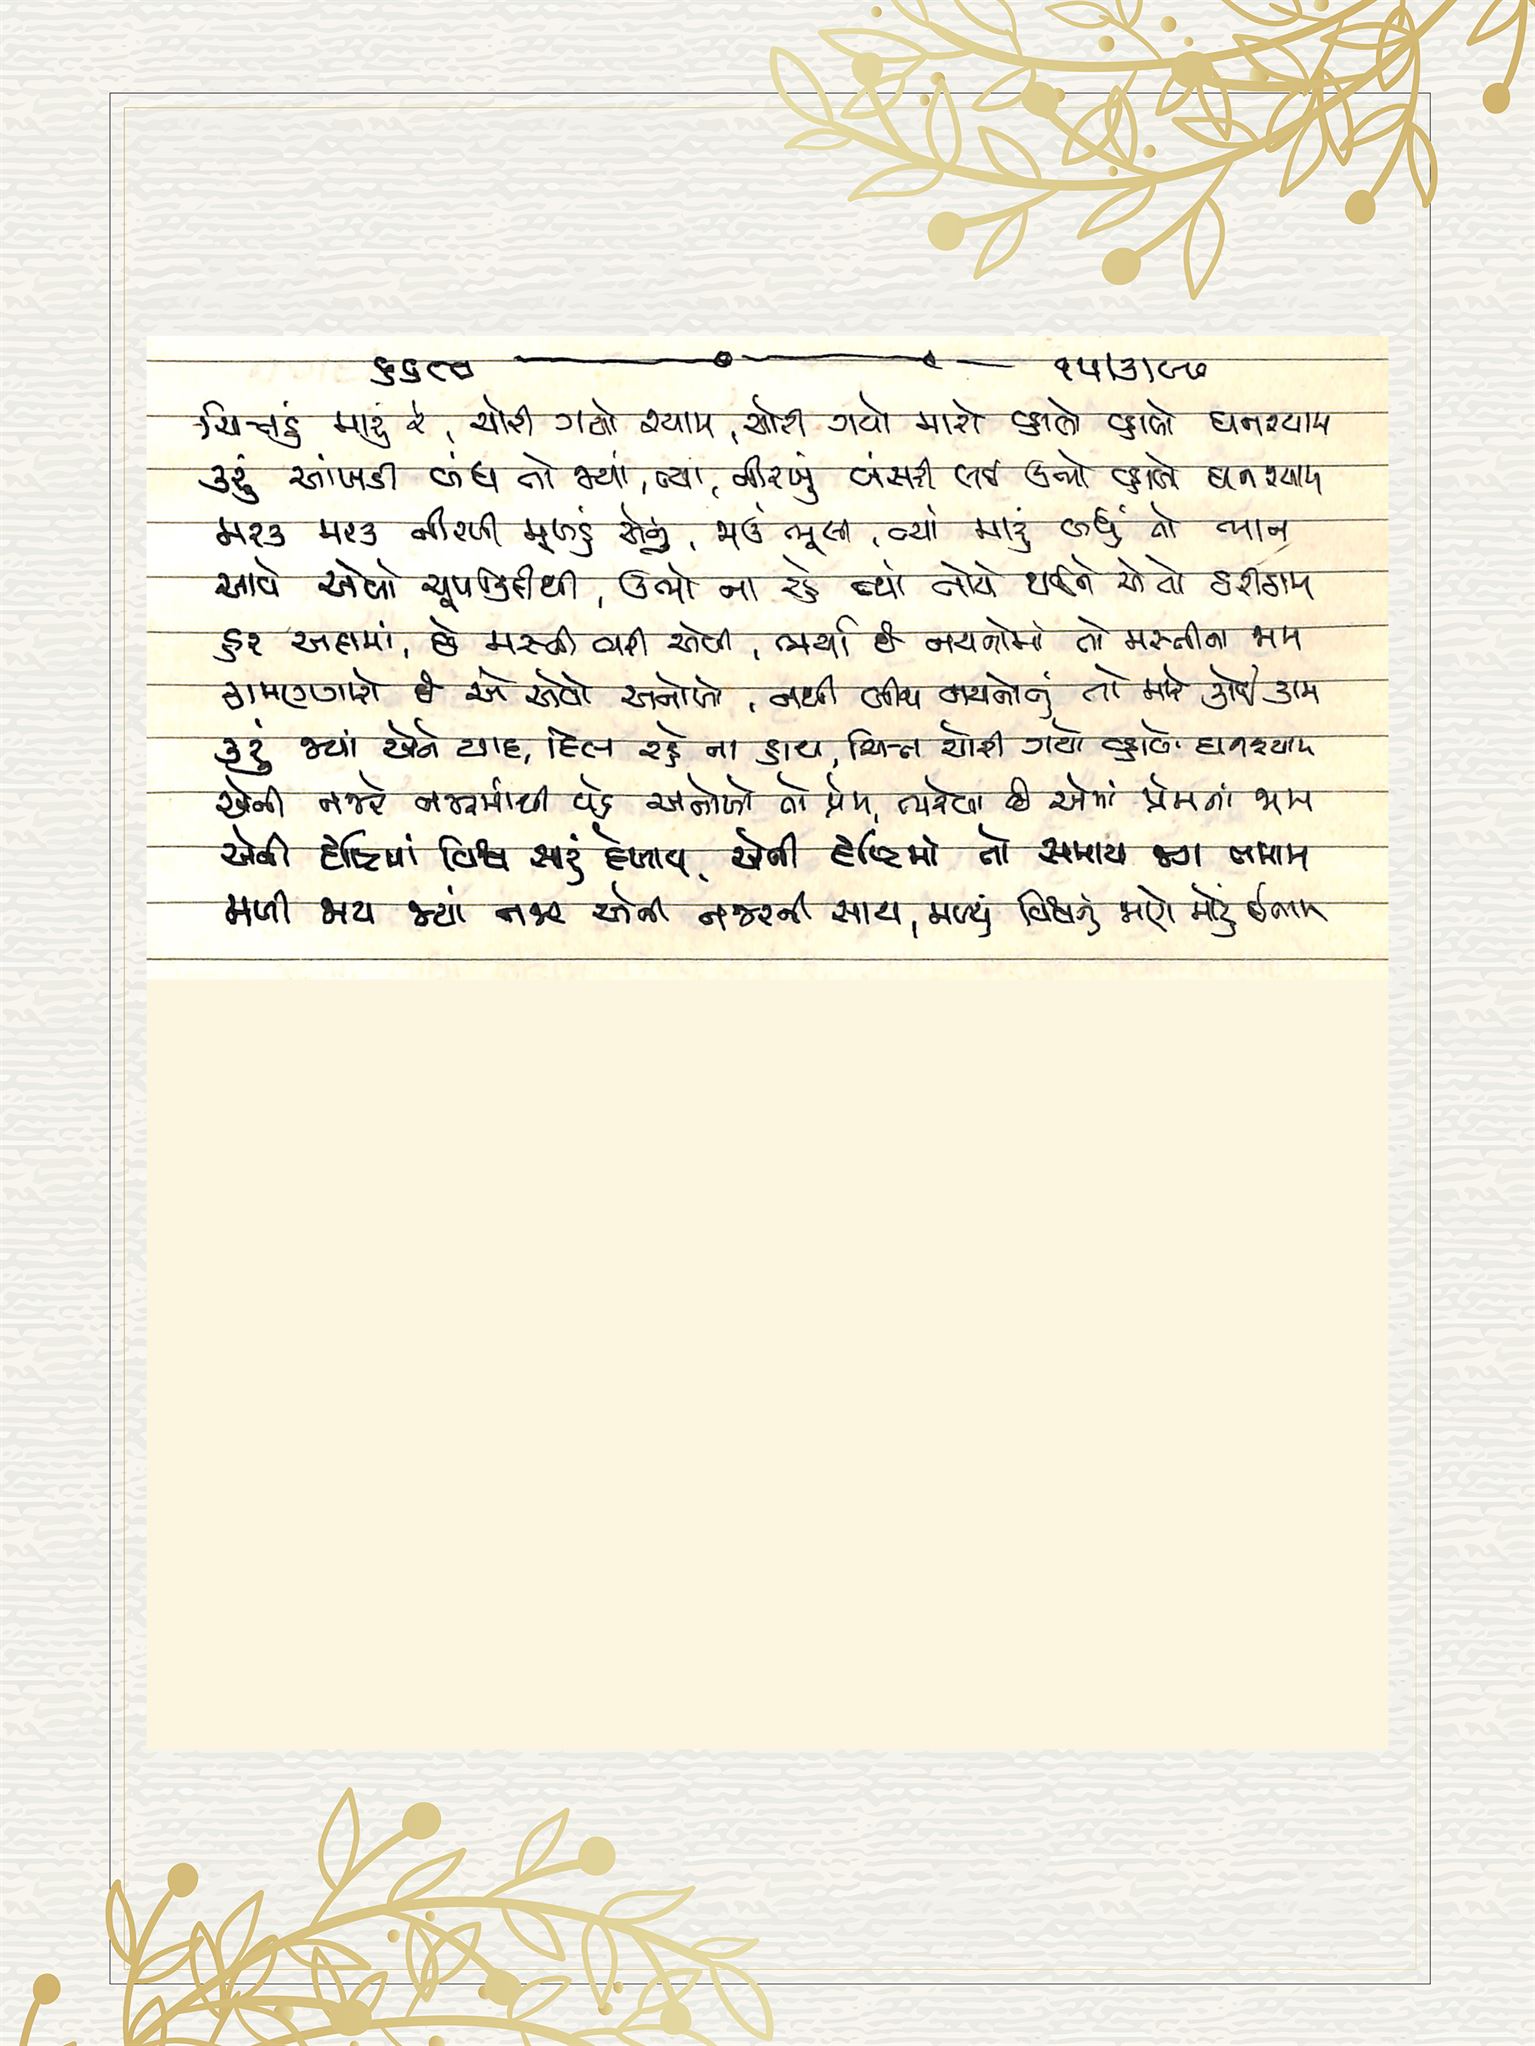 ૬૬૯૭ ૧૫/૩/૯૭
ચિત્તડું મારું રે, ચોરી ગયો શ્યામ, ચોરી ગયો મારો વ્હાલો વ્હાલો ઘનશ્યામ
કરું આંખડી બંધ તો જ્યાં, ત્યાં, નીરખું બંસરી લઈ ઉભો વ્હાલો ઘનશ્યામ
મરક મરક નીરખી મુખડું એનું, જાઉં ભૂલી, ત્યાં મારું બધું તો ભાન
આવે એવો ચૂપકિદીથી, ઉભો ના રહે ત્યાં તોયે થઈને એ તો ઠરીઠામ
હર અદામાં, છે મસ્તી ભરી એવી, ભર્યા છે નયનોમાં તો મસ્તીના જામ
કામણગારો છે એ એવો અનોખો, નથી બીજા નયનોનું તો મારે કોઈ કામ
કરું જ્યાં એને યાદ, દિલ રહે ના હાથ, ચિત્ત ચોરી ગયો વ્હાલો ઘનશ્યામ
એની નજરે નજરમાંથી વહે અનોખો તો પ્રેમ, ભરેલા છે એમાં પ્રેમનાં જામ
એની દૃષ્ટિમાં વિશ્વ સારું દેખાય, એની દૃષ્ટિમાં તો સમાય જગ તમામ
મળી જાય જ્યાં નજર એની નજરની સાથ, મળ્યું વિશ્વનું જાણે મોટું ઈનામ